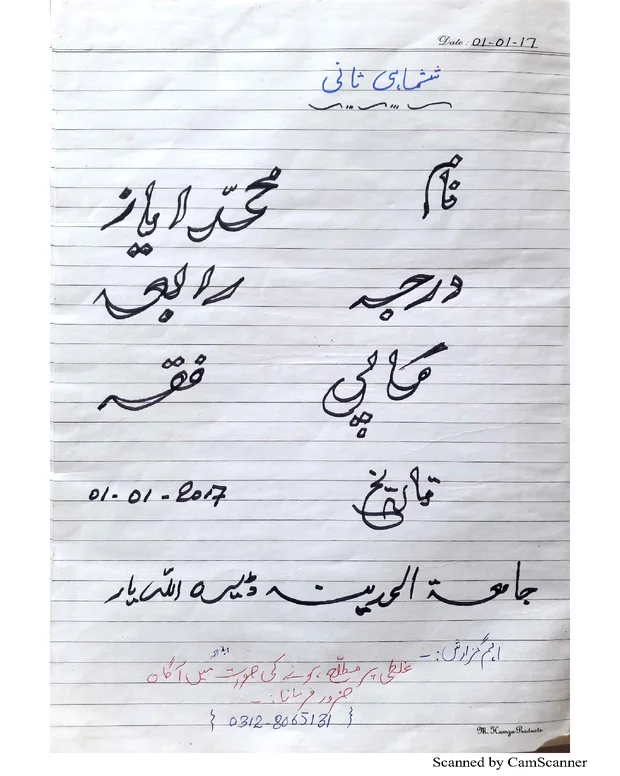 Date: 01-01-17
ششماہی ثانی
نام محمّد ایاز
درجہ رابعہ
کاپی فقہ
تاریخ 01-01-2017
جامعۃ المدینہ ڈیرہ اللہ یار
اہم گزارش:-
غلطی پر مطلع ہونے کی صورت میں آگاہ
ضرور فرمانا:-
{ 0312-8065131 }
M. Hamza Products
Scanned by CamScanner